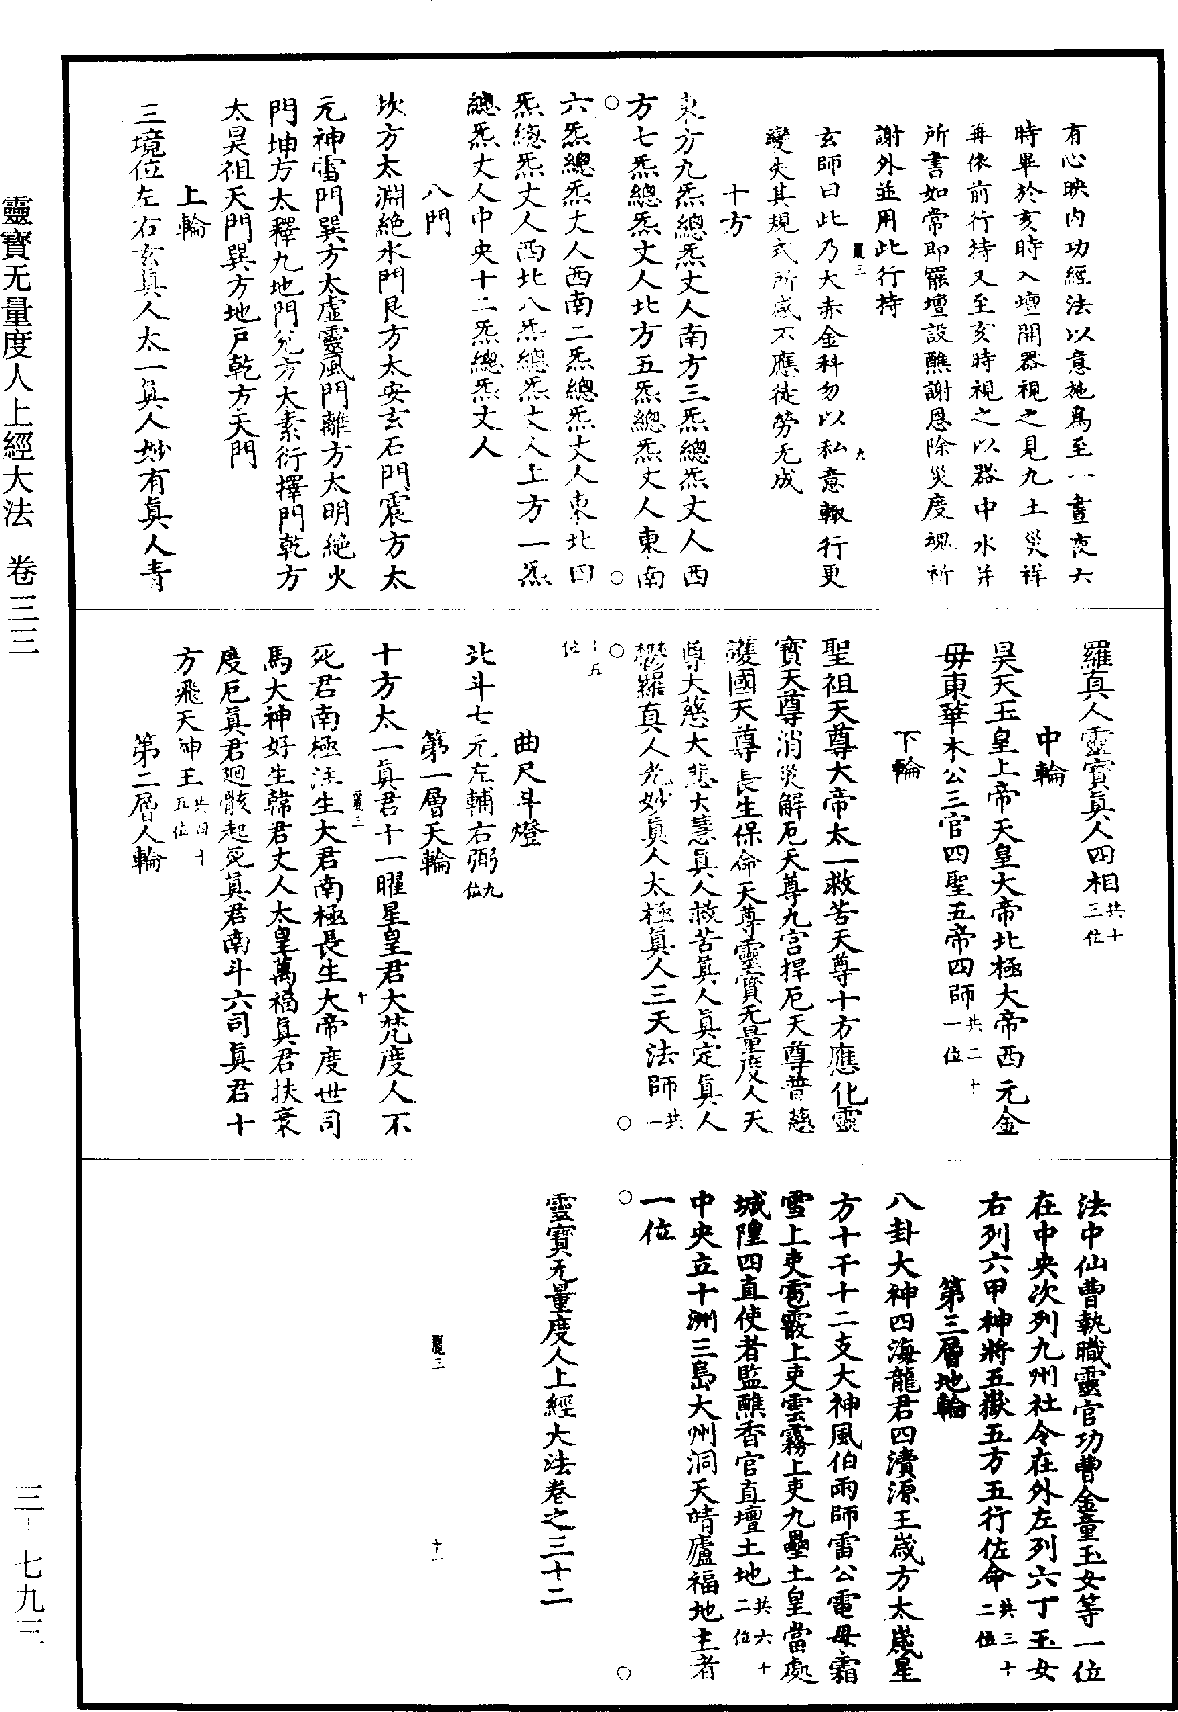 有心映内功經法以意施爲至一晝夜六
時畢於亥時入壇開器視之見九土災祥
再依前行持又至亥時視之以器中水并
所書如常即罷壇設醮謝恩除災度魂祈
謝外並用此行持
玄師曰此乃大赤金科勿以私意輙行更
變失其規式所感不應徒勞无成
十方
東方九炁總炁丈人南方三炁總炁丈人西
方七炁總炁丈人北方五炁總炁丈人東南
六炁總炁丈人西南二炁總炁丈人東北四
炁總炁丈人西北八炁總炁丈人上方一炁
總炁丈人中央十二炁總炁丈人
八門
坎方太淵絶水門艮方太安玄石門震方太
元神雷門巽方太虛靈風門離方太明絶火
門坤方太釋九地門兊方太素衍擇門乾方
太昊祖天門巽方地戸乾方天門
上輪
三境位左右玄真人太一真人妙有真人青
羅真人靈寶真人四相共十三位
中輪
昊天玉皇上帝天皇大帝北極大帝西元金
母東華木公三官四聖五帝四師共二十一位
下輪
聖祖天尊大帝太一救苦天尊十方應化靈
寶天尊消災解厄天尊九宫捍厄天尊普慈
護國天尊長生保命天尊靈寶无量度人天
尊大慈大悲大慧真人救苦真人真定真人
欝羅真人光妙真人太極真人三天法師共一
十五位
曲尺斗燈
北斗七元左輔右弼九位
第一層天輪
十方太一真君十一曜星皇君大梵度人不
死君南極注生大君南極長生大帝度世司
馬大神好生韓君丈人太皇萬福真君扶衰
度厄真君廻骸起死真君南斗六司真君十
方飛天神王共四十五位
第二層人輪
法中仙曹執職靈官功曹金童玉女等一位
在中央次列九州社令在外左列六丁玉女
右列六甲神將五嶽五方五行佐命共三十二位
第三層地輪
八卦大神四海龍君四瀆源王嵗方太嵗星
方十干十二支大神風伯雨師雷公電母霜
雪上吏雹霰上吏雲霧上吏九壘土皇當處
城隍四直使者監醮香官直壇土地共六十二位
中央立十洲三島大州洞天靖廬福地主者
一位
靈寶无量度人上經大法卷之三十二
靈寶无量度人上經大法　卷三二
三－七九三